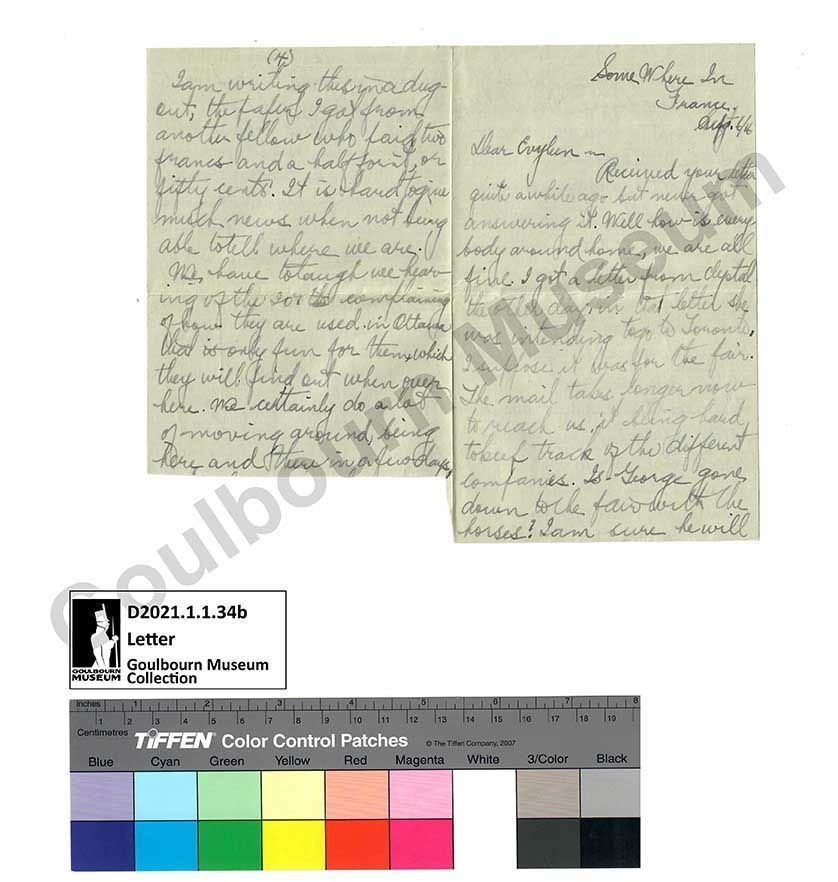 (4)
I am writing this in a dug-
out, the paper I got from
another fellow who paid two
francs and a half for it, or
fifty cents. It is hard to give
much news when not being
able to tell where we are.
We have to laugh we hear-
ing of the 207th complaining
of how they are used in Ottawa
that is only fun for them which
they will find out when over
here. We certainly do a lot
of moving around being
here and there in a few days,
Some Where In
France.
6/16
Dear Evyleen
Received your letter
quite a while ago but never got
answering it. Well how is every
body around home, we are all
fine. I got a letter from Chrystal
the other day, in that letter she
was intending to go to Toronto,
I suppose it was for the fair.
The mail takes longer now
to reach us, it being hard
to keep track of the different
companies. Is George gone
down to the fair with the
horses? I am sure he will
Goulbourn Museum
D2021.1.1.34b
Letter
Goulbourn Museum
Collection
GOULBOURN
MUSEUM
Inches 1 2 3 4 5 6 7 8
Centimetres 1 2 3 4 5 6 7 8 9 10 11 12 13 14 15 16 17 18 19
TIFFEN Color Control Patches © The Tiffen Company, 2007
Blue Cyan Green Yellow Red Magenta White 3/Color Black